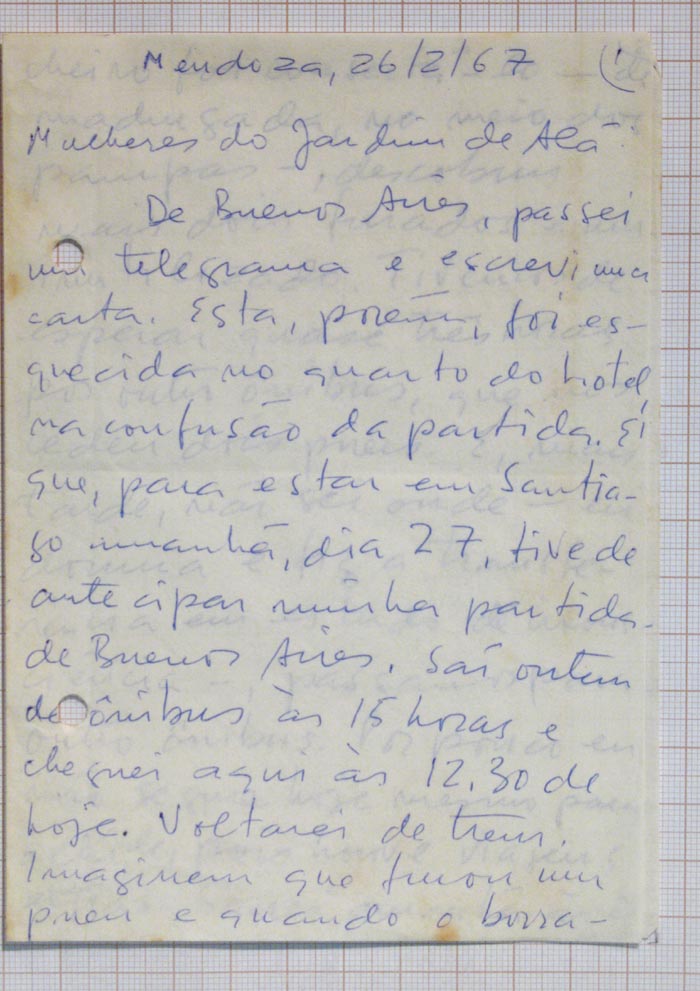 Mendoza, 26/2/67 (1
Mulheres do Jardim de Alá:
De Buenos Aires, passei
um telegrama e escrevi uma
carta. Esta, porém, foi es-
quecida no quarto do hotel,
na confusão da partida. É
que, para estar em Santia-
go amanhã, dia 27, tive de
antecipar minha partida
de Buenos Aires. Saí ontem
de ônibus às 15 horas e
cheguei aqui às 12,30 de
hoje. Voltarei de trem.
Imaginem que furou um
pneu e quando o borra-